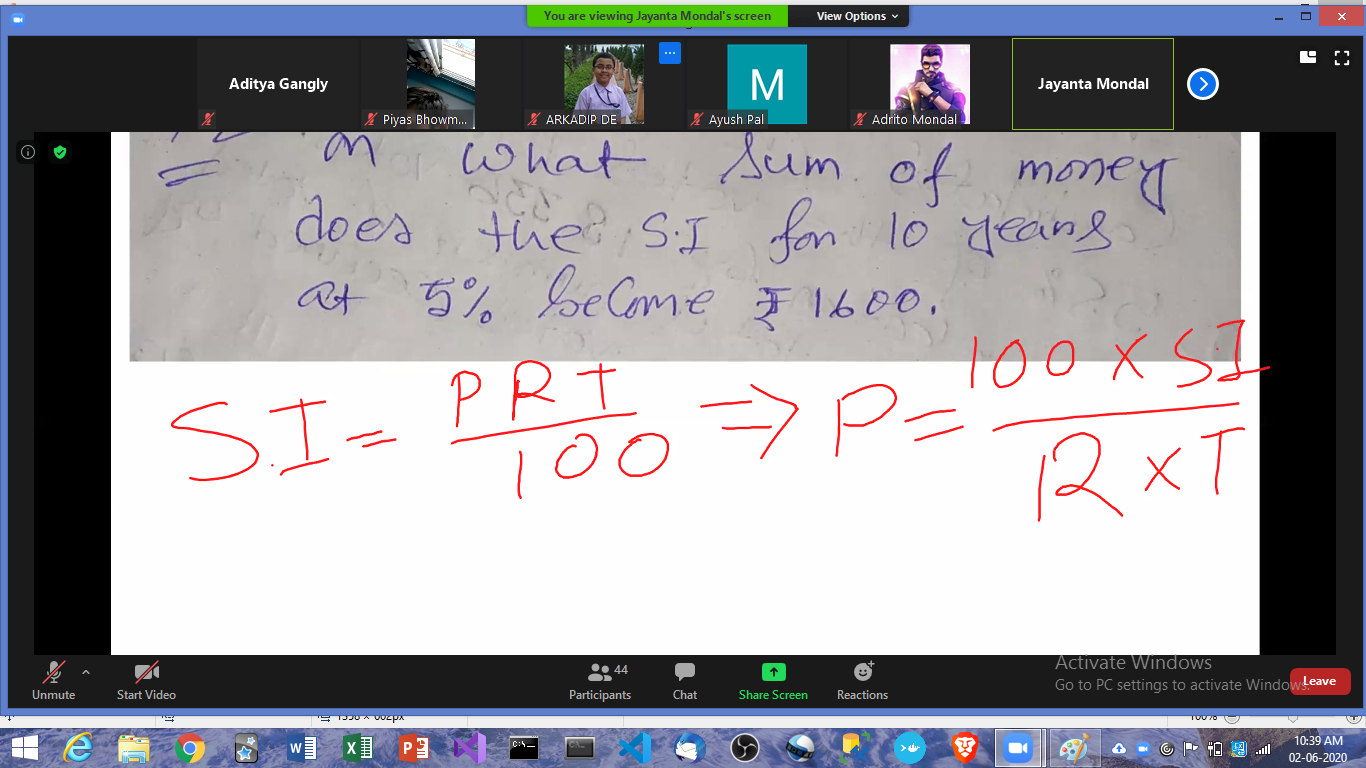 You are viewing Jayanta Mondal's screen
View Options
Aditya Gangly
Piyas Bhowm...
ARKADIP DE
M
Ayush Pal
Adrito Mondal
Jayanta Mondal
on what sum of money
does the S.I for 10 years
at 5% become ₹1600.
S.I = PRT/100 ⇒ P = 100 x S.I/12 x T
Unmute
Start Video
Participants
44
Chat
Share Screen
Reactions
Activate Windows
Go to PC settings to activate Windows.
Leave
100%
10:39 AM
02-06-2020